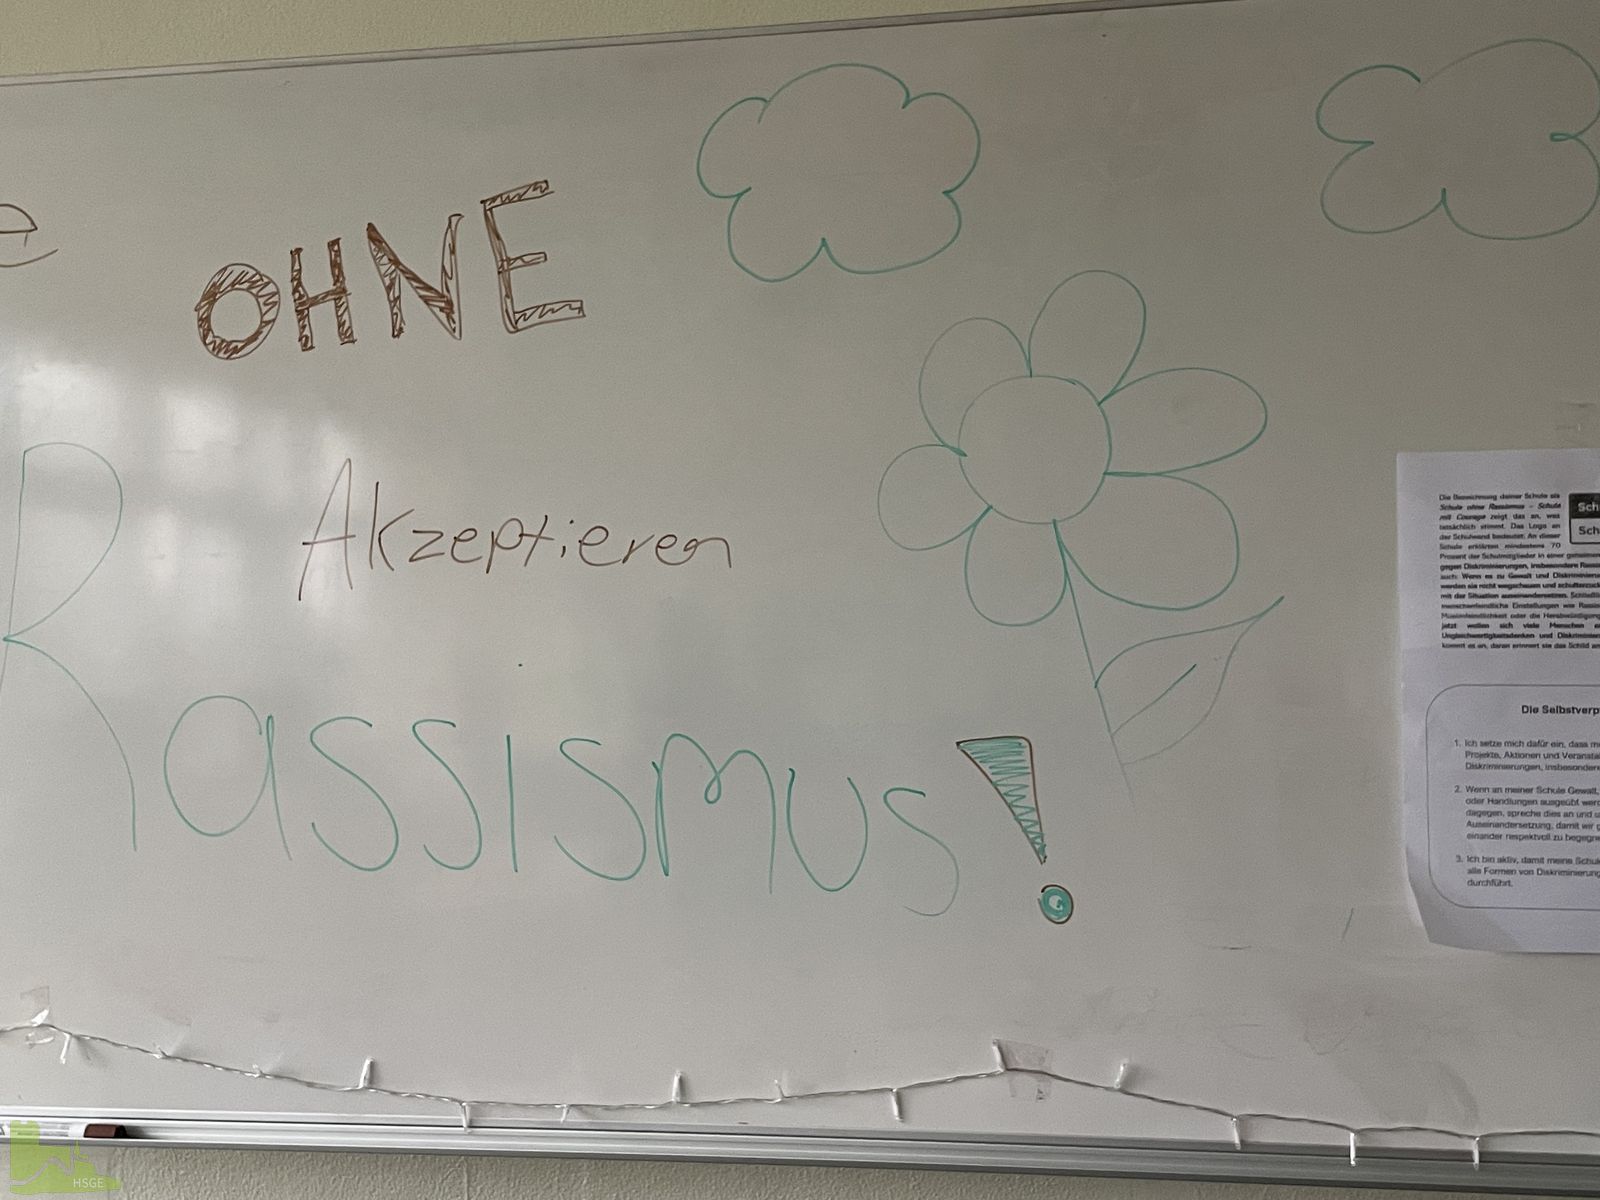 e
OHNE
Akzeptieren
Rassismus!
Die Bezeichnung deiner Schule als
Schule ohne Rassismus – Schule
mit Courage zeigt das an, was
tatsächlich stimmt. Das Logo an
der Schulwand bedeutet: An dieser
Schule erklärten mindestens 70
Prozent der Schulmitglieder in einer geheimen
gegen Diskriminierungen, insbesondere Rassi
auch: Wenn es zu Gewalt und Diskriminieru
werden sie nicht wegschauen und schulterzuck
mit der Situation auseinandersetzen. Schließli
menschenfeindliche Einstellungen wie Rassi
Muslimfeindlichkeit oder die Herabwürdigung
jetzt wollen sich viele Menschen
Ungleichwertigkeitsdenken und Diskriminier
kommt es an, daran erinnert sie das Schild an
Sch
Sch
Die Selbstverp
1. Ich setze mich dafür ein, dass m
Projekte, Aktionen und Veransta
Diskriminierungen, insbesondere
2. Wenn an meiner Schule Gewalt,
oder Handlungen ausgeübt werd
dagegen, spreche dies an und u
Auseinandersetzung, damit wir g
einander respektvoll zu begegne
3. Ich bin aktiv, damit meine Schul
alle Formen von Diskriminierung
durchführt.
HSGE